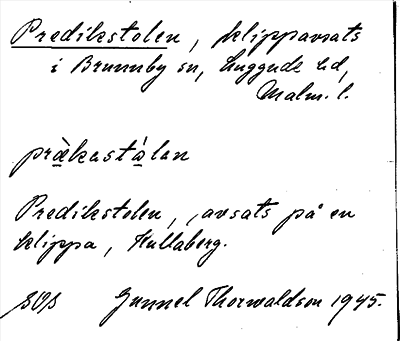 Predikstolen, klippavsats
i Brunnby sn, Luggude hd,
Malm. l.
prækastålan
Predikstolen, avsats på en
klippa, Kullaberg.
Gunnel Thorwaldson 1945.